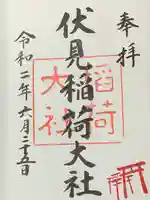 奉拝
伏見稲荷大社
稲荷
大社
令和二年六月二十五日